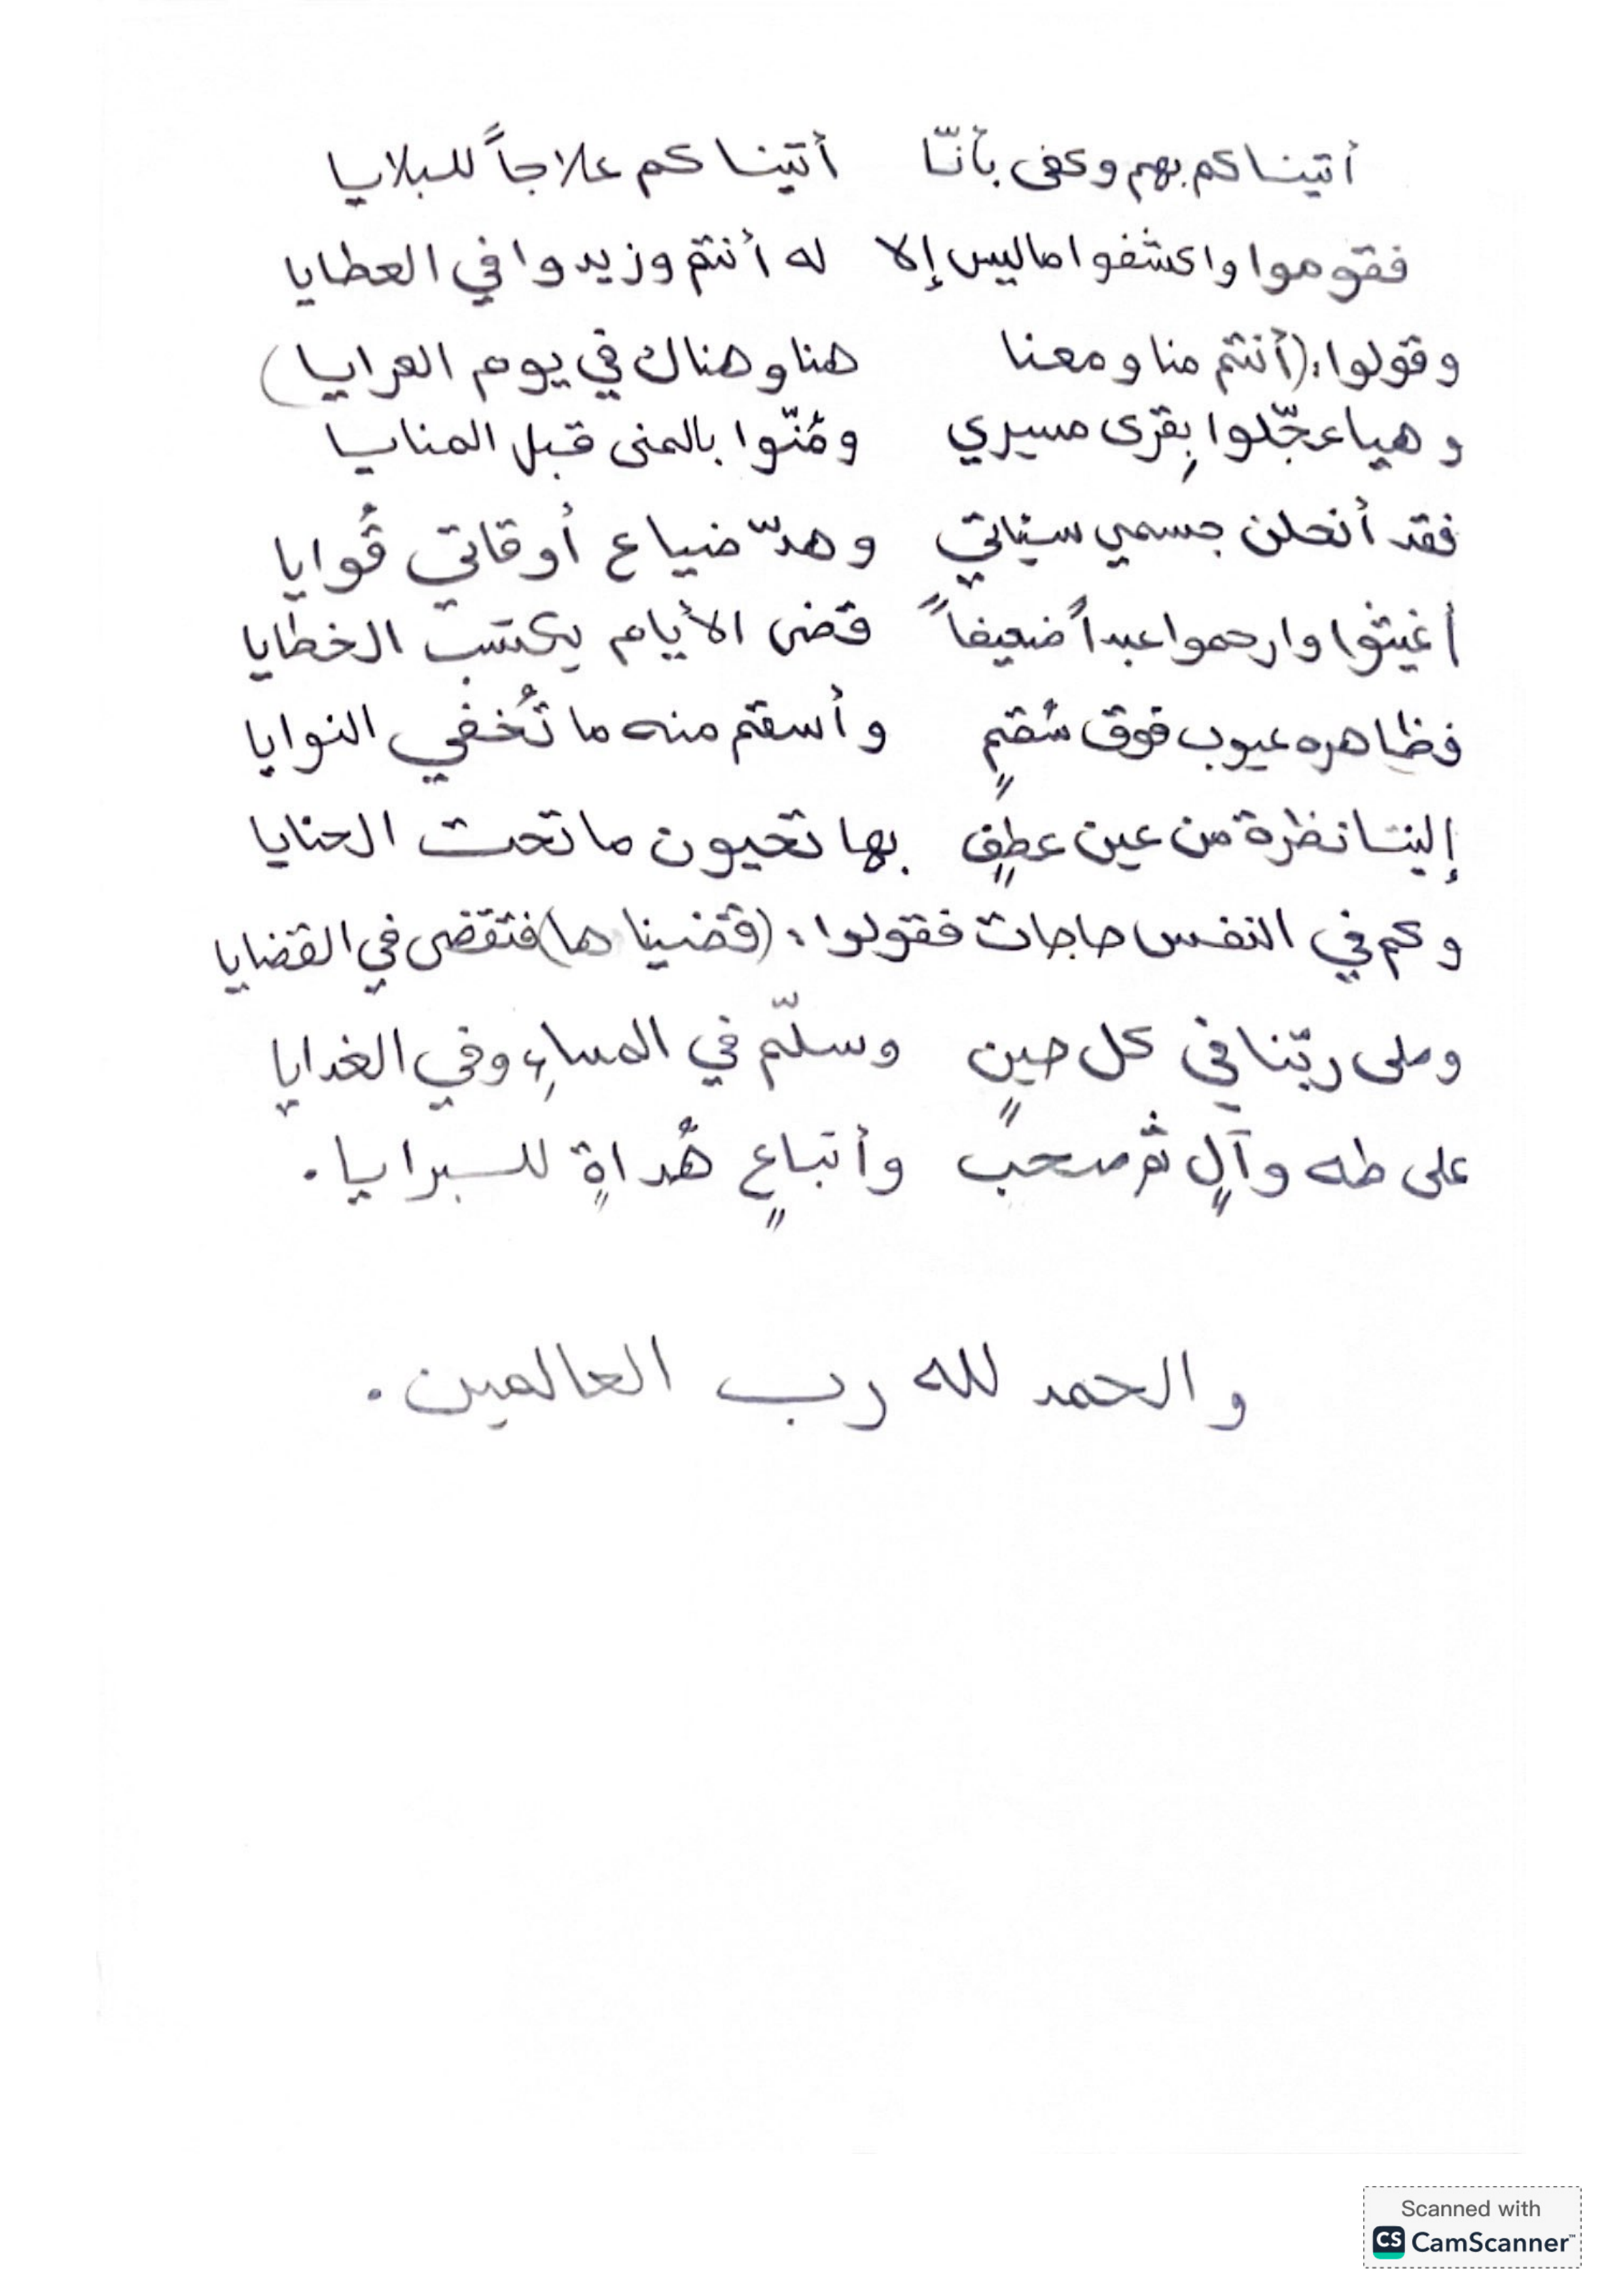 أتيناكم بهم وكفى بأنّا أتيناكم علاجاً للبلايا
فقوموا واكشفوا ما ليس إلا له أنتم وزيدوا في العطايا
وقولوا: (أنتم منا ومعنا هنا وهناك في يوم العرايا)
وهيا عجّلوا بِقرى مسيري ومُنّوا بالمنى قبل المنايا
فقد أنحلن جسمي سيئاتي وهدّ ضياع أوقاتي قُوايا
أغيثوا وارحموا عبداً ضعيفاً قضى الأيام يكتسب الخطايا
فظاهره عيوب فوق سُقمٍ وأسقم منه ما تُخفي النوايا
إلينا نظرة من عين عطفٍ بها تحيون ما تحت الحنايا
وكم في النفس حاجات فقولوا: (قضيناها) فتقضى في القضايا
وصلى ربّنا في كل حينٍ وسلّم في المساءِ وفي الغدايا
على طه وآلٍ ثم صحبٍ وأتباعٍ هُداةٍ للبرايا.
والحمد لله رب العالمين.
Scanned with
CS CamScanner™